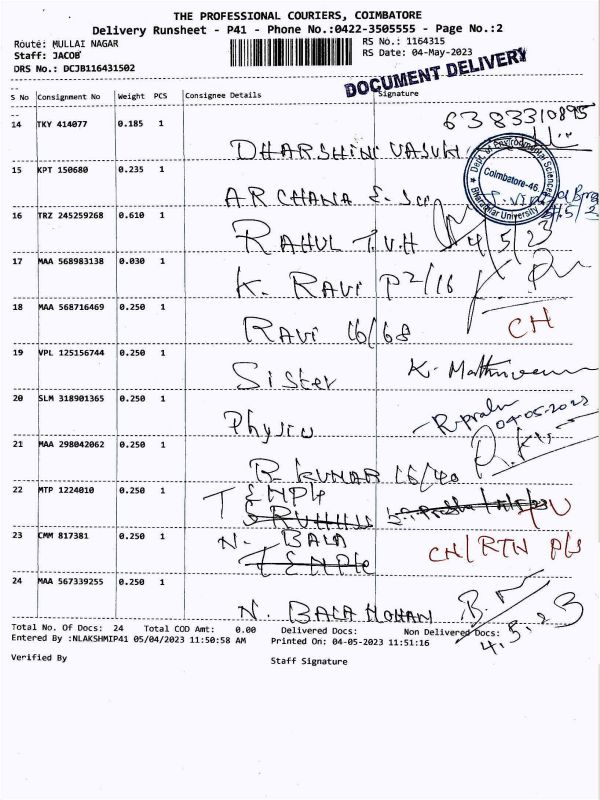 THE PROFESSIONAL COURIERS, COIMBATORE
Delivery Runsheet - P41 - Phone No.:0422-3505555 - Page No.:2
Route: MULLAI NAGAR
RS No.: 1164315
Staff: JACOB
RS Date: 04-May-2023
DRS No.: DCJB116431502
DOCUMENT DELIVERY
S No Consignment No Weight PCS Consignee Details Signature
14 TKY 414077 0.185 1
6383310895
DHARSHINI VASUKI
15 KPT 150680 0.235 1
Dept. of Environmental Sciences
Coimbatore-46.
Bharathiar University
ARCHANA
16 TRZ 245259268 0.610 1
RAHUL T.V.H 4/5/23
17 MAA 568983138 0.030 1
K. RAVI P2/16
18 MAA 568716469 0.250 1
RAVI 16/68
CH
19 VPL 125156744 0.250 1
Sister K.
20 SLM 318901365 0.250 1
Physics
04-05-2023
21 MAA 298042062 0.250 1
R. KUMAR 16/40
22 MTP 1224010 0.250 1
TEMPle
23 CMM 817381 0.250 1
N. BALA
TEMPle
CH/RTN P/s
24 MAA 567339255 0.250 1
N. BALA MOHAN
4.5.23
Total No. Of Docs: 24 Total COD Amt: 0.00 Delivered Docs: Non Delivered Docs:
Entered By :NLAKSHMIP41 05/04/2023 11:50:58 AM Printed On: 04-05-2023 11:51:16
Verified By
Staff Signature